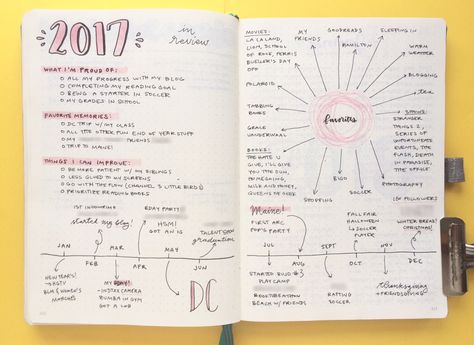 2017
in
review
WHAT I'M PROUD OF:
ALL MY PROGRESS WITH MY BLOG
COMPLETING MY READING GOAL
BEING A STARTER IN SOCCER
MY GRADES IN SCHOOL
FAVORITE MEMORIES:
DC TRIP W/ MY CLASS
ALL THE OTHER FUN END OF YEAR STUFF
MY FRIENDS
TRIP TO MAINE!
THINGS I CAN IMPROVE:
BE MORE PATIENT W/ MY SIBLINGS
LESS GLUED TO MY SCREENS
GO WITH THE FLOW (CHANNEL 3 LITTLE BIRDS)
PRIORITIZE READING BOOKS
1ST
started my blog!
BDAY PARTY!
HSM!
GOT AN IG
TALENT SHOW
graduation
JAN
MAR
MAY
FEB
APR
JUN
NEW YEAR'S!
→ HGTV
BLM & WOMEN'S
MARCHES
MY BDAY!
-INSTAX CAMERA
RUMBA IN GYM
GOT A LOB
DC
MOVIES:
LA LA LAND,
LION, SCHOOL
OF ROCK, FERRIS
BUELLER'S DAY
OFF
MY
FRIENDS
GOODREADS
HAMILTON
SLEEPING IN
WARM
WEATHER
POLAROID
BLOGGING
tea
TABBING
BOOKS
GRACE
VANDERWAAL
favorites
SHOWS:
STRANGER
THINGS 2,
SERIES OF
UNFORTUNATE
EVENTS, THE
FLASH, DEATH
IN PARADISE,
THE OFFICE
BOOKS:
THE HATE U
GIVE, I'LL GIVE
YOU THE SUN,
MILK AND HONEY,
SHOPPING
BUJO
SOCCER
PHOTOGRAPHY
Maine!
FIRST ARC
POP'S PARTY
FALL FAIR
HALLOWEEN
→ SOCCER
PLAYER
1K FOLLOWERS
WINTER BREAK!
CHRISTMAS!
JUL
SEPT
NOV
AUG
OCT
DEC
STARTED BUJO #3
PLAY CAMP
BEACH W/ FRIENDS
RAFTING
SOCCER
thanksgiving
+FRIENDSGIVING